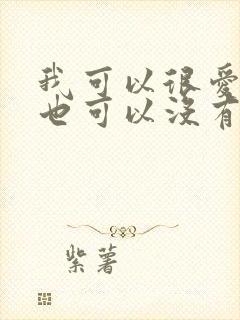 我可以很爱
也可以没有
紫薯